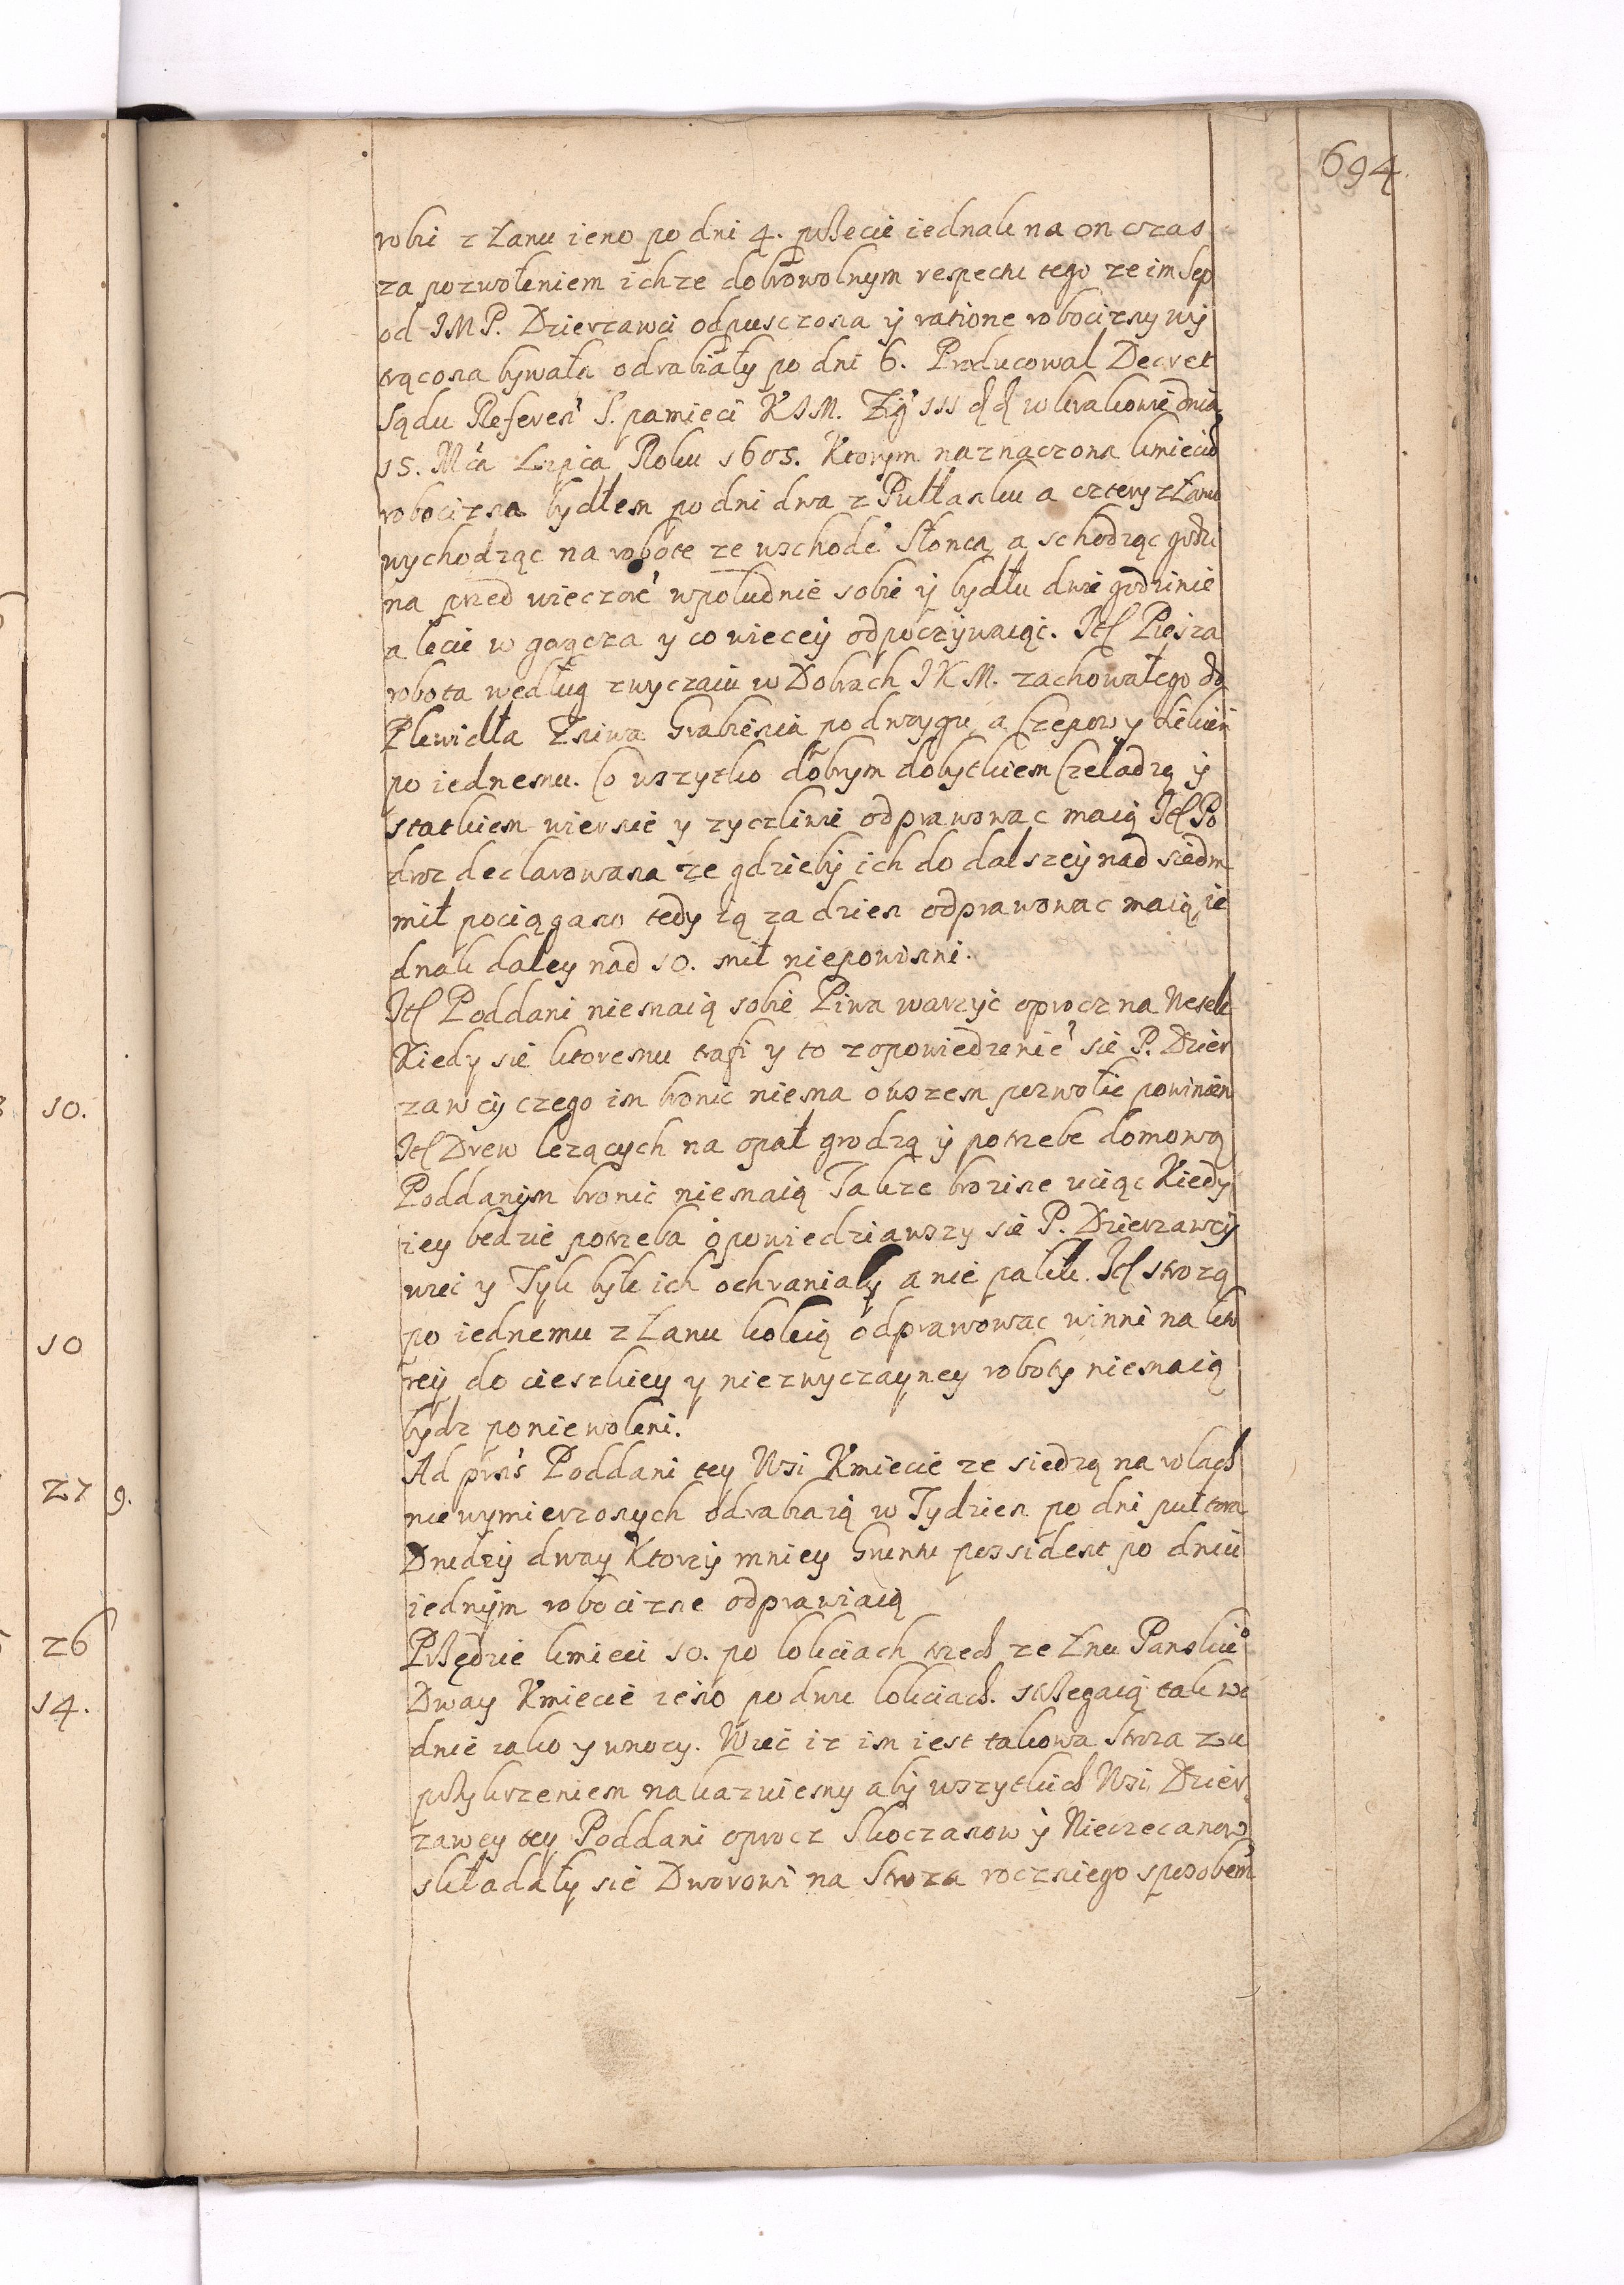 694.
robic z Łanu ieno po dni 4. przecie iednak na on czas
za pozwoleniem ich ze dobrowolnym respectu tego ze im Sep
od IMP. Dzierzawci odpusczona ÿ ratione robocizny wÿ
trącona bywała odrabiały po dni 6. Producowal Decret
Sądu Referen S. pamieci KIM. Zÿg III w Krakowie dnia
15. Mca Lipca Roku 1605. Ktorym naznaczona kmieciom
robocizna bydłem po dni dwa z Pułłanku a cztery z Łanu
wychodząc na robote ze wschode Słonca a schodząc godzi
na przed wieczore wpoludnie sobie ÿ bydłu dwie godzinie
a lecie w gorącza y co wiecey odpoczÿwaiąc. Itl Piesza
robota według zwyczaiu w Dobrach IKM. zachowałego do
Plewidła Zniwa Grabienia po dwoygu a Czepow y
po iednemu. Co wszytko dobrym dobytkiem Czeladzą ÿ
statkiem wiernie y zyczliwie odprawowac maią Itl Po
droz declarowana ze gdzieby ich do dalszeÿ nad siedm
mil pociągano tedy ią za dzien odprawowac maią ie
dnak daley nad 10. mil niepowinni.
Itl Poddani niemaią sobie Piwa warzÿc oprocz na Wesele
Kiedy sie ktoremu trafi y to zopowiedzenie sie P. Dzier
zawcÿ czego im bronic niema owszem pozwolic powinien
Itl Drew lezących na opał grodzą ÿ potrzebe domową
Poddanÿm bronic niemaią Takze brozine uciąc Kiedy
iey bedzie potrzeba opowiedziawszy sie P. Dzierzawcÿ
wiec y Tyk byle ich ochraniały a nie palili. Itl strozą
po iednemu z Łanu koleią odprawowac winni na kto
reÿ do cieszkiey y niezwyczayney roboty niemaią
bydz poniewoleni.
Ad pns Poddani tey Wsi Kmiecie ze siedzą na rolach
niewymierzonych odrabiaią w Tydzien po dni pułtora
Drudzÿ dway Ktorzÿ mniey Gruntu possident po dniu
iednÿm robocizne odprawiaią
Przędzie kmieci 10. po lokciach trzech ze Lnu Panskie
Dway Kmiecie ieno po dwu lokciach. strzegaią tak we
dnie iako y wnocy. Wiec iz im iest takowa Stroza z u
przykrzeniem nakazuiemy abÿ wszytkich Wsi Dzier
zawcy tey Poddani oprocz Skoczanow ÿ Nieczecanow
składały sie Dworowi na Stroza rocznego sposobem
10.
10
27 9.
26
14.